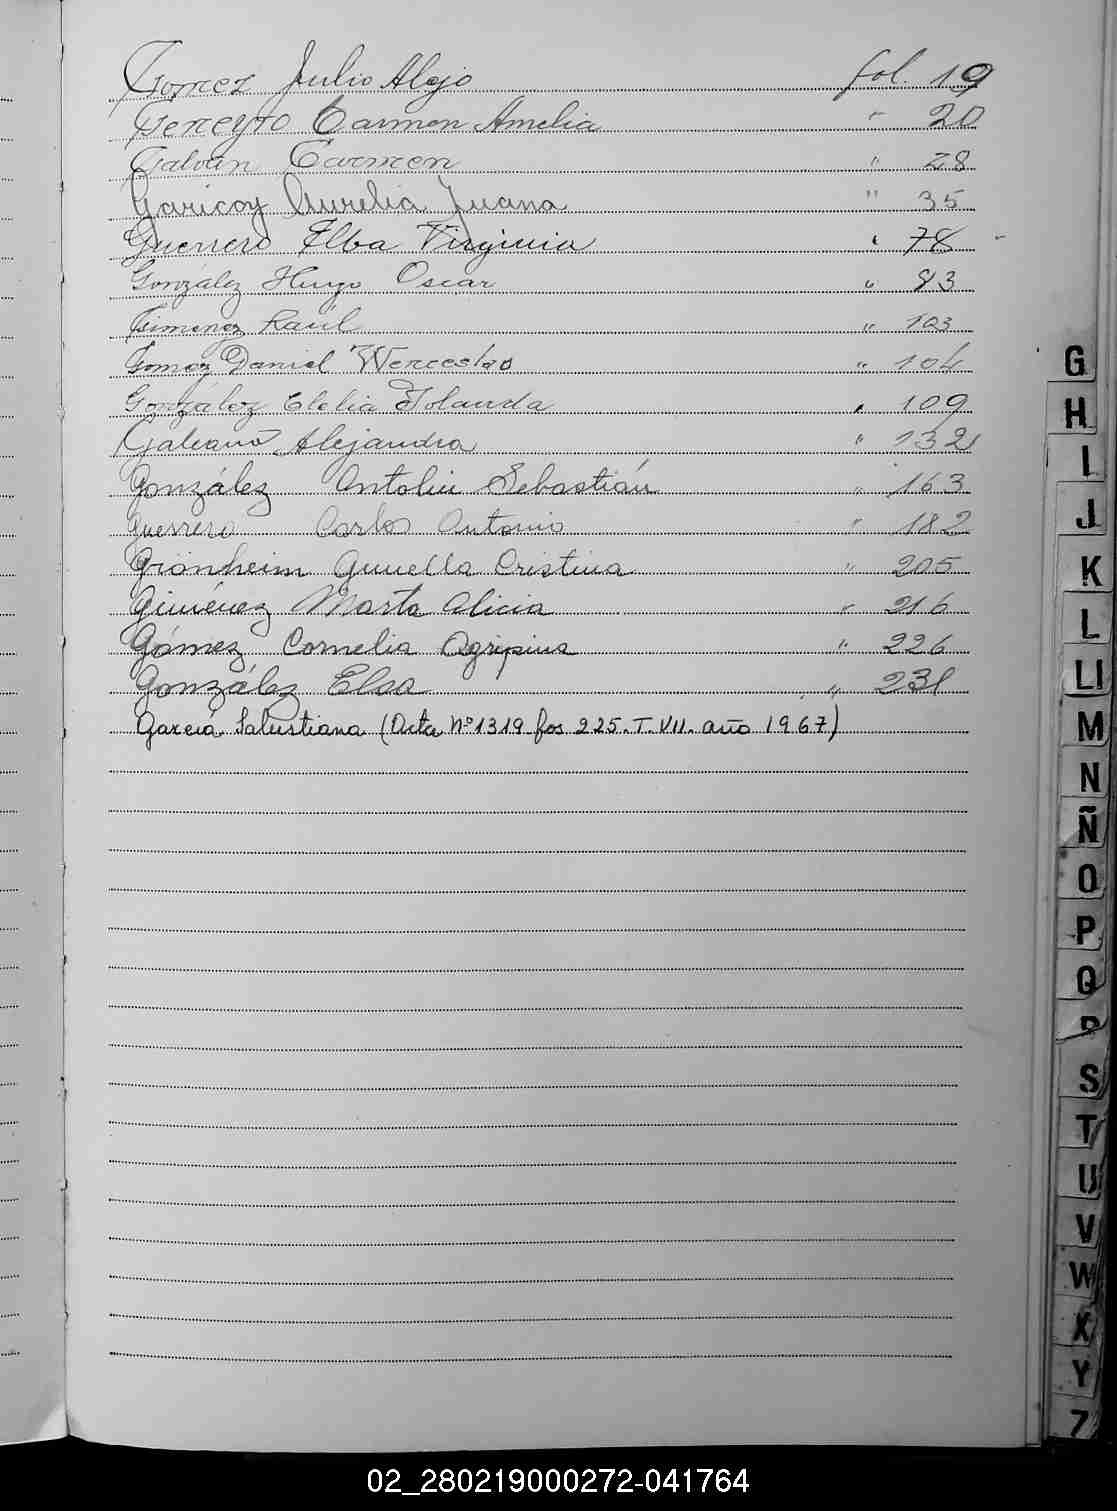 Gomez Julio Alejo fol. 19
Pereyro Carmen Amelia " 20
Galván Carmen " 28
Garicoy Aurelia Juana " 35
Guerrero Elba Virginia " 78
González Hugo Oscar " 83
Gimenez Raúl " 103
Gomez Daniel Wenceslao " 104
González Clelia Yolanda " 109
Galeano Alejandra " 132
González Antolin Sebastián " 163
Guerrero Carlos Antonio " 182
Gionheim Gunella Cristina " 205
Giménez Marta Alicia " 216
Gómez Cornelia Agripina " 226
González Elsa " 231
García Salustiana (Acta Nº 1319 fos 225. T. VII. año 1967)
G
H
I
J
K
L
Ll
M
N
Ñ
O
P
Q
R
S
T
U
V
W
X
Y
Z
02_280219000272-041764